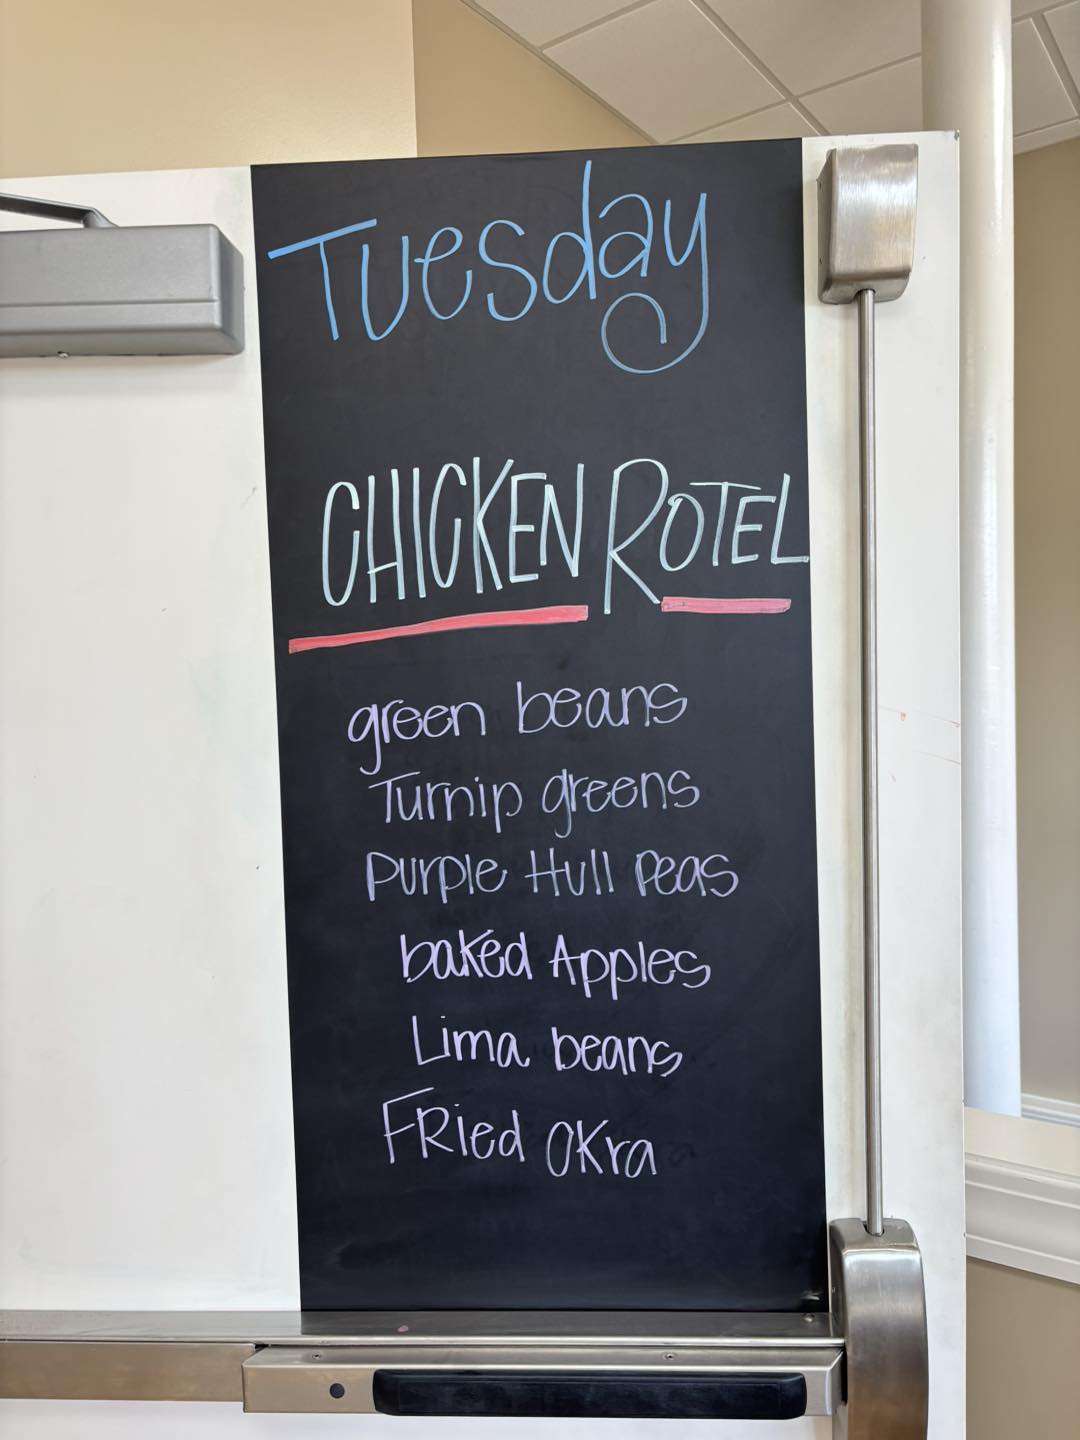 Tuesday
CHICKEN ROTEL
green beans
Turnip greens
Purple Hull Peas
baked Apples
Lima beans
FRied OKra